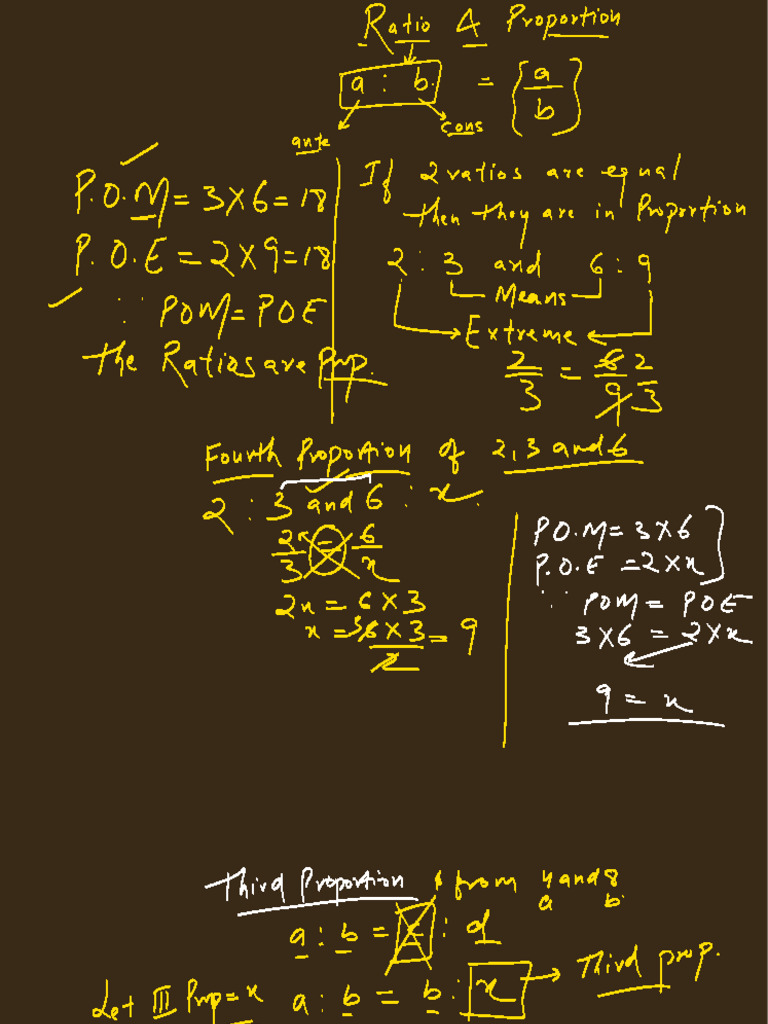 Ratio & Proportion
a : b = {a/b}
ante
cons
P.O.M = 3×6 = 18
P.O.E = 2×9 = 18
∵ POM = POE
the Ratios are Prop.
If 2 ratios are equal
then they are in Proportion
2 : 3 and 6 : 9
Means
Extreme
2/3 = 6/9 2/3
Fourth Proportion of 2, 3 and 6
2 : 3 and 6 : x
2/3 = 6/x
2x = 6 × 3
x = 6 × 3 / 2 = 9
P.O.M = 3×6
P.O.E = 2×x
∵ POM = POE
3×6 = 2×x
9 = x
Third Proportion from 4 and 8
a b
a : b = c : d
Let III Prop = x a : b = b : x → Third prop.